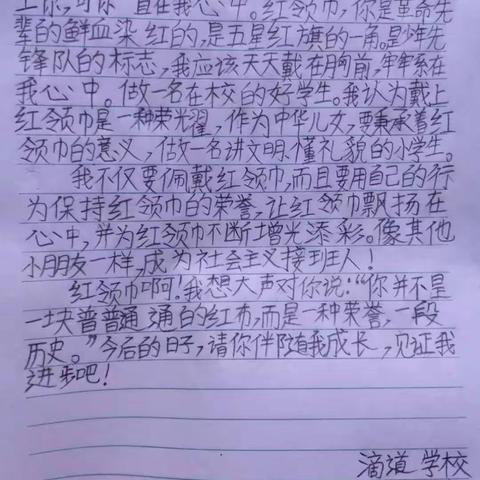 上你,可你一直在我心中。红领巾,你是革命先
辈的鲜血染红的,是五星红旗的一角。是少年先
锋队的标志,我应该天天戴在胸前,牢牢系在
我心中。做一名在校的好学生。我认为戴上
红领巾是一种荣光耀,作为中华儿女,要秉承着红
领巾的意义,做一名讲文明、懂礼貌的小学生。
我不仅要佩戴红领巾,而且要用自己的行
为保持红领巾的荣誉,让红领巾飘扬在
心中,并为红领巾不断增光添彩。像其他
小朋友一样,成为社会主义接班人!
红领巾啊!我想大声对你说:“你并不是
一块普普通通的红布,而是一种荣誉,一段
历史。”今后的日子,请你伴随我成长,见证我
进步吧!
滴道学校